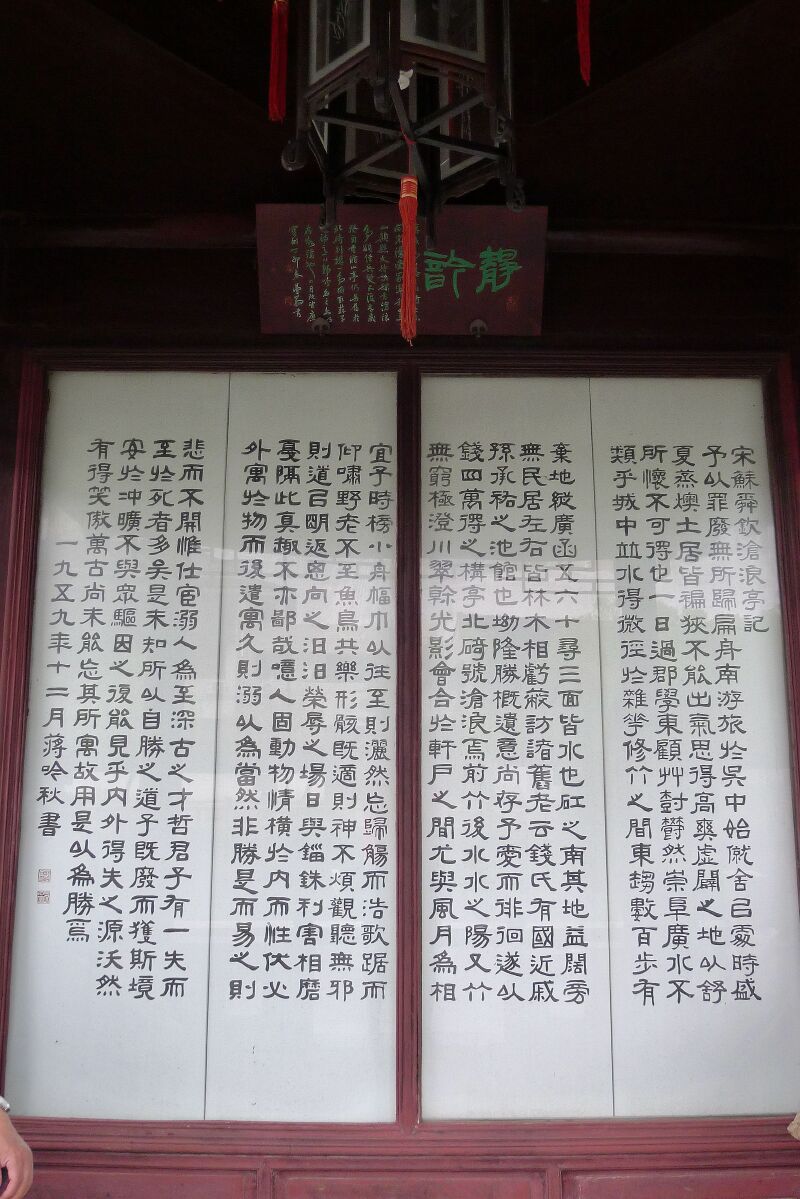 靜訡
宋蘇舜欽滄浪亭記
予以罪廢無所歸扁舟南游旅於吳中始僦舍㠯處時盛
夏蒸燠土居皆褊狹不能出氣思得高爽虛闢之地以舒
所懷不可得也一日過郡學東顧艸樹鬱然崇阜廣水不
類乎城中並水得微徑於雜花修竹之間東趨數百步有
棄地縱廣函五六十尋三面皆水也矼之南其地益闊旁
無民居左右皆林木相虧蔽訪諸舊老云錢氏有國近戚
孫承祐之池館也坳隆勝概遺意尚存予愛而徘徊遂以
錢四萬得之構亭北碕號滄浪焉前竹後水水之陽又竹
無窮極澄川翠榦光影會合於軒戶之間尤與風月為相
宜予時榜小舟幅巾以往至則灑然忘歸觴而浩歌踞而
仰嘯野老不至魚鳥共樂形骸既適則神不煩觀聽無邪
則道㠯明返思向之汩汩榮辱之場日與錙銖利害相磨
戛隔此真趣不亦鄙哉噫人固動物情橫於內而性伏必
外寓於物而後遣寓久則溺以為當然非勝是而易之則
悲而不開惟仕宦溺人為至深古之才哲君子有一失而
至於死者多矣是未知所以自勝之道予既廢而獲斯境
安於沖曠不與眾驅因之復能見乎內外得失之源沃然
有得笑傲萬古尚未能忘其所寓故用是以為勝焉
一九五九年十二月蔣吟秋書